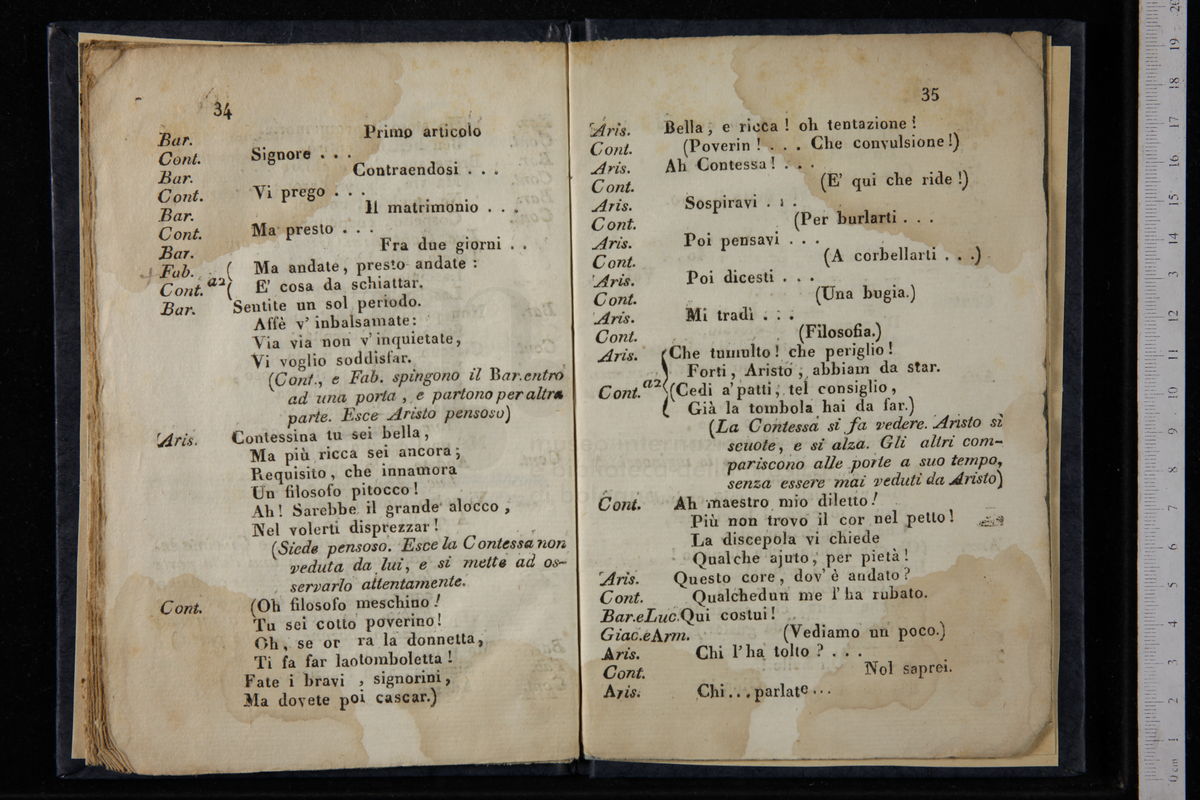 34
Bar. Primo articolo
Cont. Signore . . .
Bar. Contraendosi . . .
Cont. Vi prego . . .
Bar. Il matrimonio . . .
Cont. Ma presto . . .
Bar. Fra due giorni . .
Fab. Ma andate, presto andate :
Cont. a2 E' cosa da schiattar.
Bar. Sentite un sol periodo.
Affè v' inbalsamate:
Via via non v'inquietate,
Vi voglio soddisfar.
(Cont., e Fab. spingono il Bar. entro
ad una porta , e partono per altra
parte. Esce Aristo pensoso)
Aris. Contessina tu sei bella,
Ma più ricca sei ancora;
Requisito, che innamora
Un filosofo pitocco!
Ah! Sarebbe il grande alocco ,
Nel volerti disprezzar!
(Siede pensoso. Esce la Contessa non
veduta da lui, e si mette ad os-
servarlo attentamente.
Cont. (Oh filosofo meschino!
Tu sei cotto poverino!
Oh, se or ra la donnetta,
Ti fa far laotomboletta !
Fate i bravi , signorini,
Ma dovete poi cascar.)
35
Aris. Bella, e ricca ! oh tentazione !
Cont. (Poverin ! . . . Che convulsione!)
Aris. Ah Contessa! . . .
Cont. (E' qui che ride !)
Aris. Sospiravi . . .
Cont. (Per burlarti . . .
Aris. Poi pensavi . . .
Cont. (A corbellarti . . .)
Aris. Poi dicesti . . .
Cont. (Una bugia.)
Aris. Mi tradì . . .
Cont. (Filosofia.)
Aris. Che tumulto! che periglio!
Forti, Aristo, abbiam da star.
Cont. a2 (Cedi a' patti, tel consiglio,
Già la tombola hai da far.)
(La Contessa si fa vedere. Aristo si
scuote, e si alza. Gli altri com-
pariscono alle porte a suo tempo,
senza essere mai veduti da Aristo)
Cont. Ah maestro mio diletto!
Più non trovo il cor nel petto!
La discepola vi chiede
Qualche ajuto, per pietà!
Aris. Questo core, dov' è andato?
Cont. Qualchedun me l' ha rubato.
Bar. e Luc. Qui costui!
Giac. e Arm. (Vediamo un poco.)
Aris. Chi l'ha tolto ? . . .
Cont. Nol saprei.
Aris. Chi . . . parlate . . .